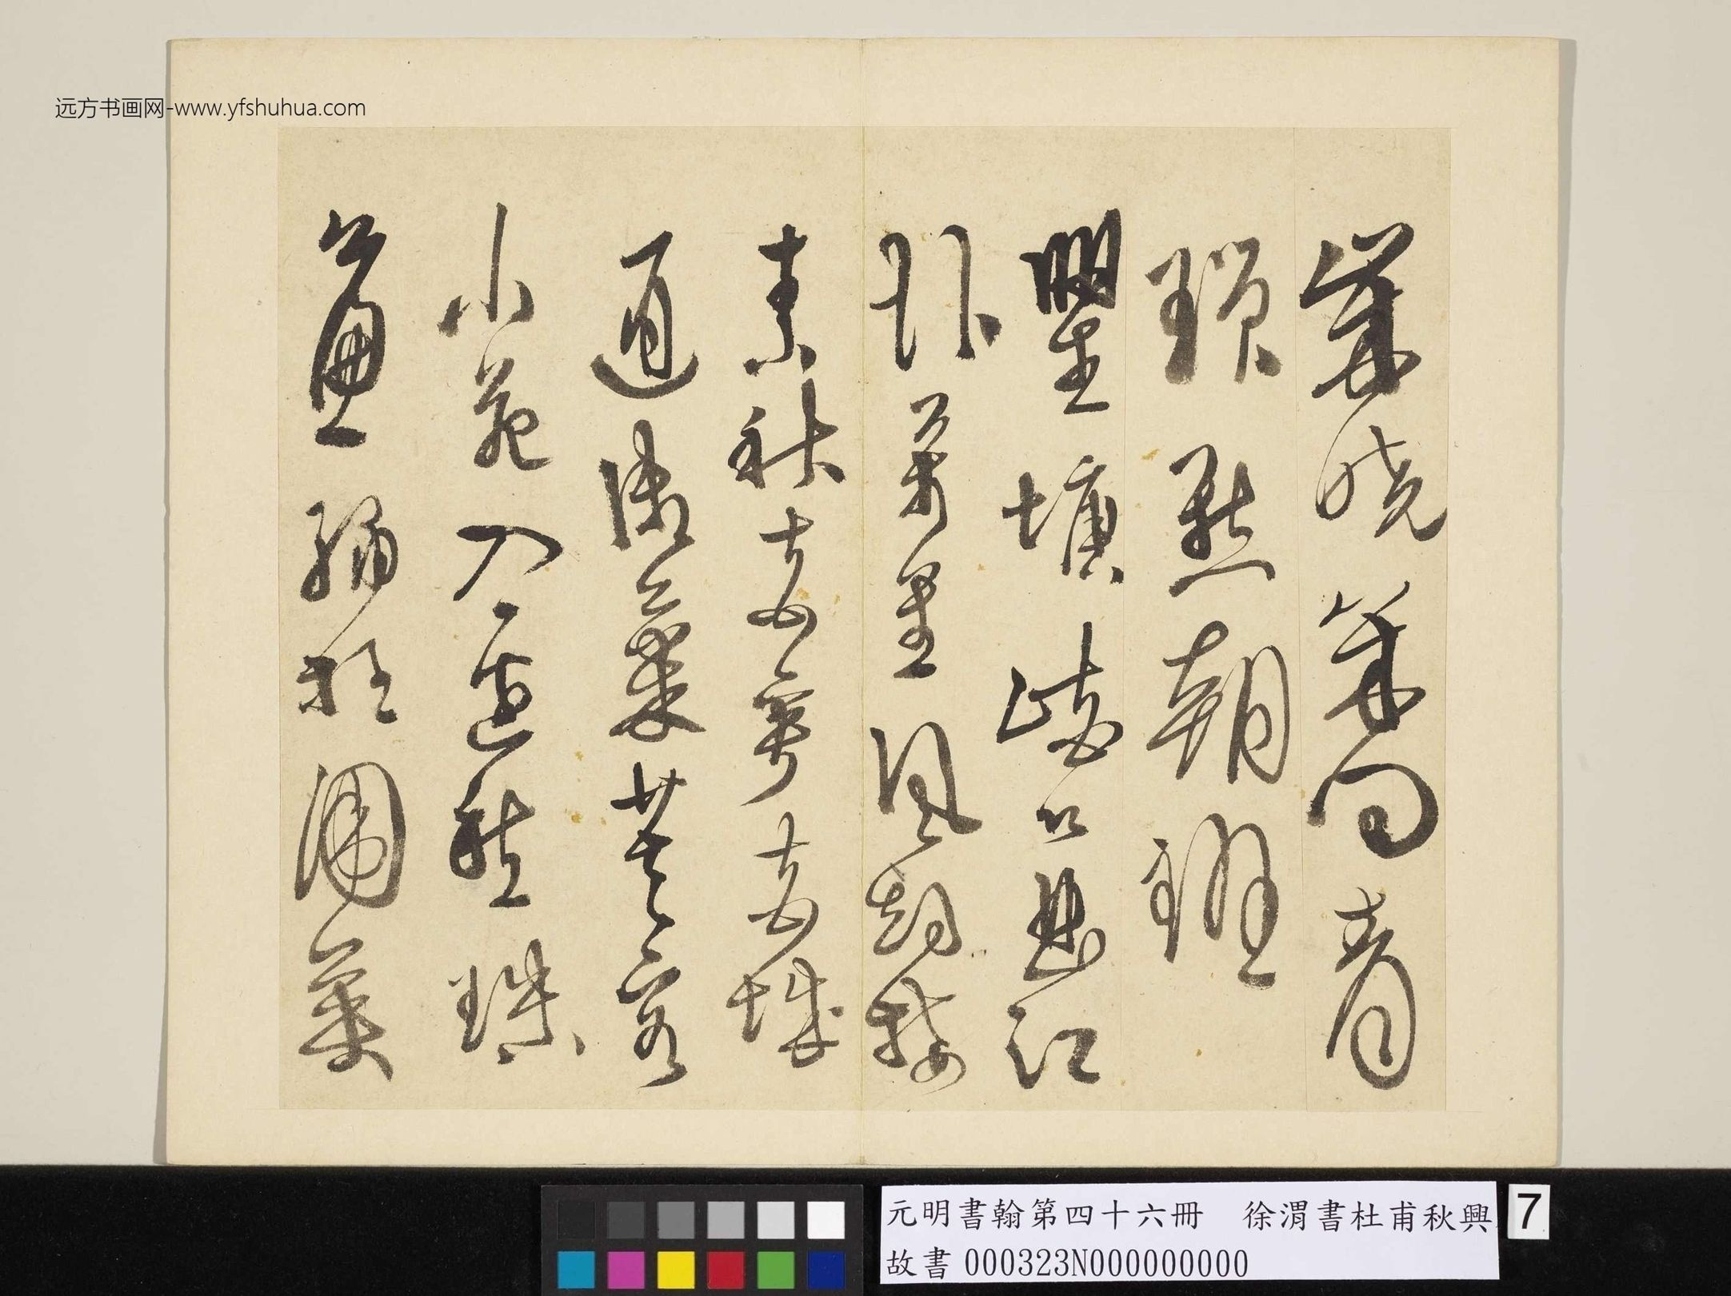 远方书画网-www.yfshuhua.com
歲晚幾回青
瑣點朝班
瞿塘峽口曲江
頭萬里風煙接
素秋花萼夾城
通御氣芙蓉
小苑入邊愁珠
簾繡柱圍黃
元明書翰第四十六冊　徐渭書杜甫秋興
故書 000323N000000000
7